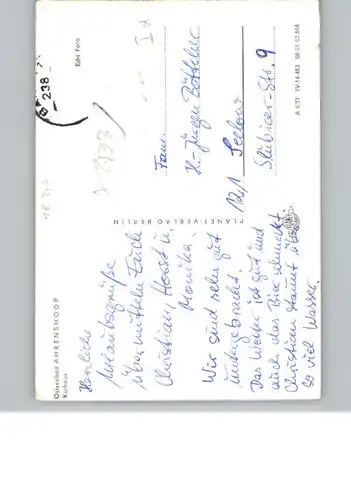 Ostseebad AHRENSHOOP
Kurhaus
Herzliche
Urlaubsgrüße
übermitteln Euch
Christian, Horst u.
Monika.
Wir sind sehr gut
untergebracht.
Das Wetter ist gut und
auch das Bier schmeckt.
Christian staunt über
so viel Wasser.
PLANET-VERLAG BERLIN
Echt Foto
238
Fam.
H.-Jürgen
121 Seelow
Str. 9
A 4/77 IV-14-483